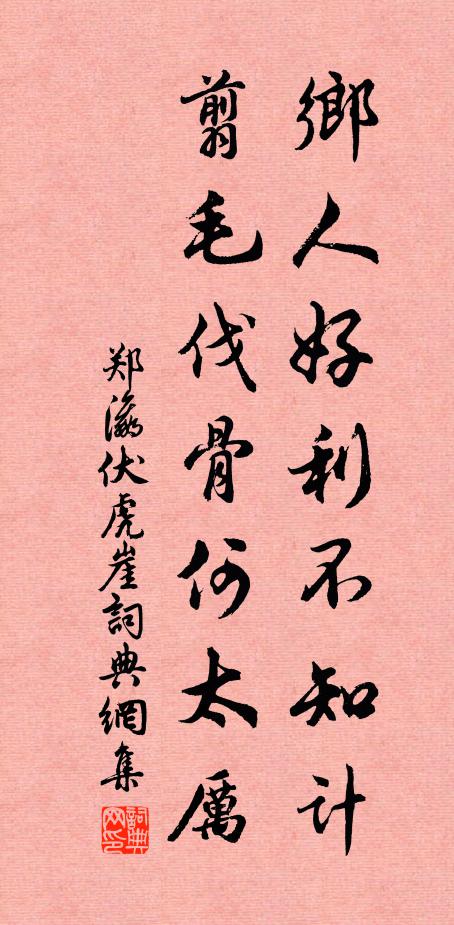 鄉人好利不知計
翦毛伐骨何太厲
郑瀛伏虎崖詞典網集
詞典网印